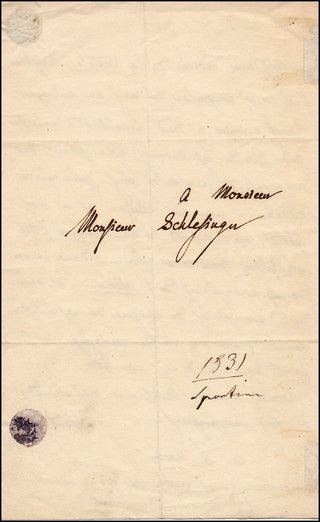 A Monsieur
Monsieur Schlesinger
1831
Spontini